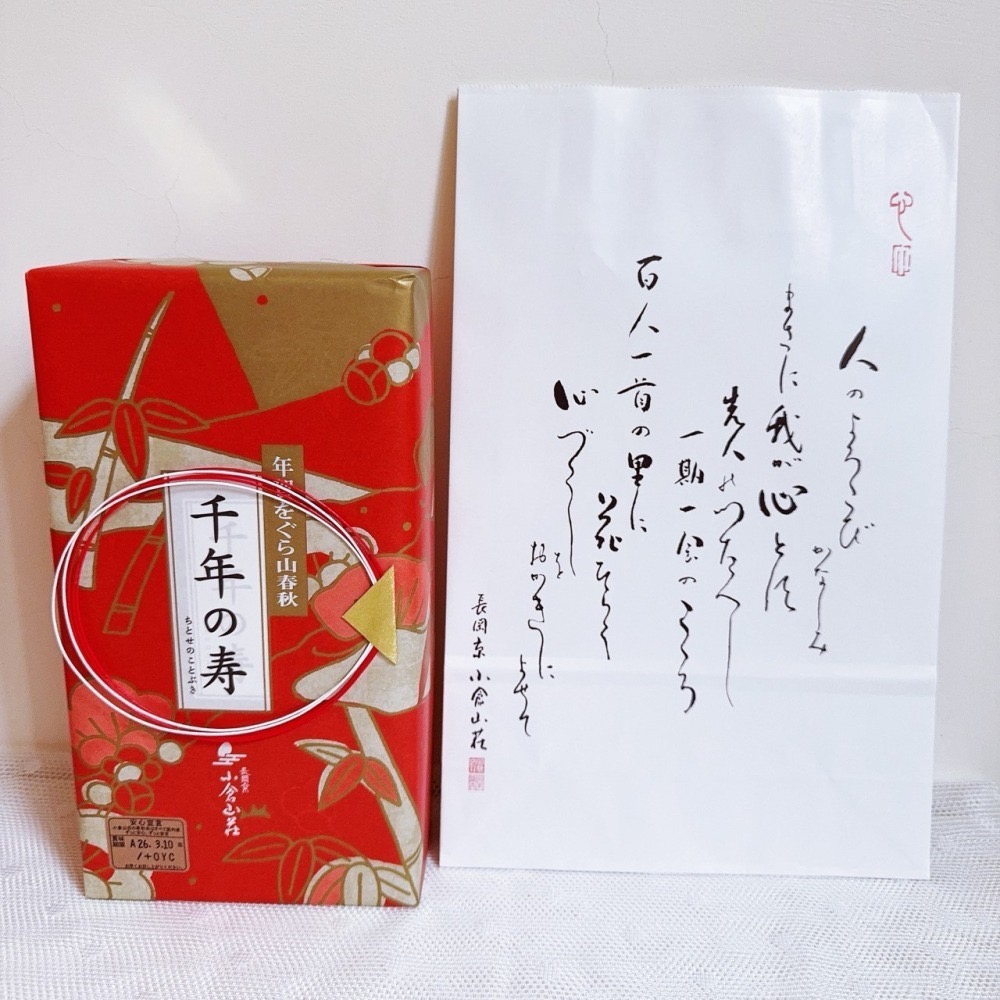 年賀をぐら山春秋
千年の寿
ちとせのことぶき
長岡京
小倉山荘
安心宣言
賞味期限 A26.3.10
/+OYC
人のよろこび
かなしみ
まさに我が心と
先人のつたへし
一期一会のこころ
百人一首の里に
花ひらく
心づくしを
おかきに
よせて
長岡京 小倉山荘